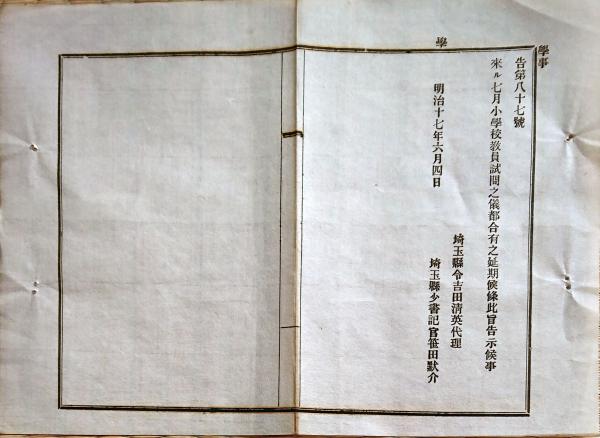 學事
告第八十七號
來ル七月小學校教員試問之儀都合有之延期候條此旨告示候事
明治十七年六月四日
埼玉縣令吉田清英代理
埼玉縣少書記官笹田默介
學